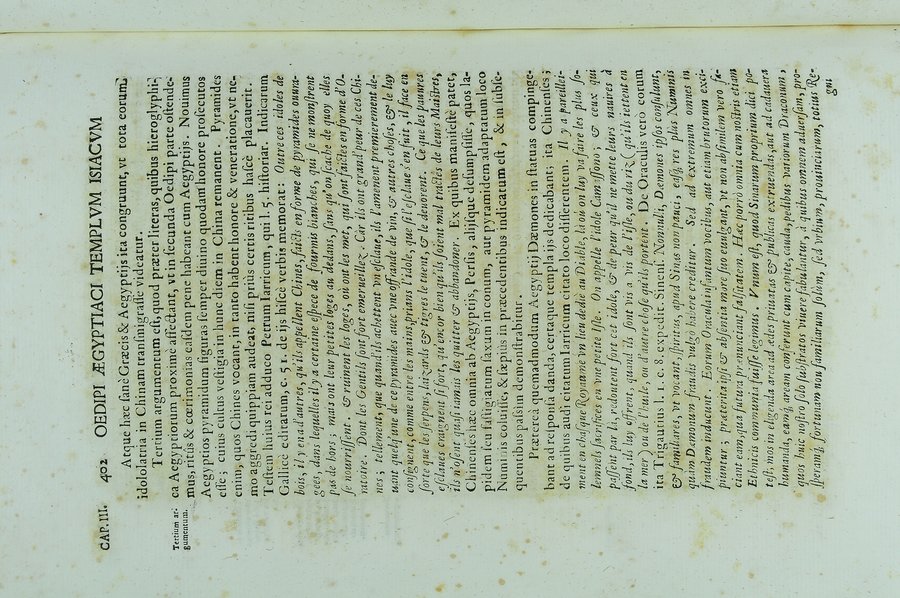 CAP. III. 402 OEDIPI ÆGYPTIACI TEMPLVM ISIACVM
Atque hæc sanè Græcis & Aegyptijs ita congruunt, vt tota eorum
idololatria in Chinam transmigrasse videatur.
Tertium ar-
gumentum.
Tertium argumentum est, quod præter literas, quibus hieroglyphi-
ca Aegyptiorum proximè affectant, vt in secunda Oedipi parte ostende-
mus, ritus & cœrimonias easdem pene habeant cum Aegyptijs. Nouimus
Aegyptios pyramidum figuras semper diuino quodam honore prosecutos
esse; cuius cultus vestigia in hunc diem in China remanent. Pyramides
enim, quos Chines vocant, in tanto habent honore & veneratione, vt ne-
mo aggredi quippiam audeat, nisi prius certis ritibus hasce placauerit.
Testem huius rei adduco Petrum Iarricum, qui l. 5. historiar. Indicarum
Gallicè editarum, c. 51. de ijs hisce verbis memorat: Outre ces idoles de
bois, il y en a d'autres, qu'ils appellent Chines, faicts en forme de pyramides ouura-
gees, dans lesquelles il y a certaine espece de fourmis blanches, qui se ne monstrent
pas de hors; mais ont leur petites loges au dedans, sans qu'on scache de quoy elles
se nourrissent. & trument les loges, où ont les met, qui sont faictes en forme d'O-
ratoire. Dont les Gentils sont emerueillez. Car ils ont grand peur de ces Chi-
nes; tellement, que quand ils achettent vn esclaue, ils l'amenent premierement de-
uant quelqu'une de ce pyramides auec vne offrande de vin, & autres choses, & le luy
consignent, comme entre les mains, prians l'idole, que s'il esclaue s'en fuit, il face en
sorte que les serpens, laizards & tigres le tuent, & le deuorent. Ce que les pauures
esclaues craignent si fort, qu'encor bien qu'ils soient mal traictés de leurs Maistres,
ils n'osent quasi iamais les quiter & abandoner. Ex quibus manifestè patet,
Sinas hæc omnia ab Aegyptijs, Persis, alijsque desumpsisse, quorum hic la-
pidem seu fastigiatum saxum in conum, aut pyramidem adaptatum loco
Numinis coluisse, & sæpius in præcedentibus indicatum est, & in subse-
quentibus passim demonstrabitur.
Præterea quemadmodum Aegyptij Dæmones in statuas compinge-
bant ad responsa danda, certaque templa ijs dedicabant; ita Chinenses;
de quibus audi citatum Iarricum citato loco disserentem. Il y a pareille-
ment en chasque Royaume vn lieu dedié au Diable, là où on luy va faire les plus so-
lemnels sacrifices en vne petite Isle. On appelle l'idole Camassono; & ceux qui
passent par là, redoutent fort cet idole, & de peur qu'il ne mette leurs naures à
fond, ils luy offrent, quand ils sont vis a vis de l'isle, ou du riz ( qu'ils iettent en
la mer) ou de l'huile, ou d'autre chose qu'ils portent. De Oraculis vero eorum
ita Trigautius l. 1. c. 8. expedit. Sinens. Nonnulli, Dæmones ipsos consulunt,
& familiares, vt vocant, spiritus, apud Sinas non pauci; estque res plus Numinis
quam dæmonis fraudis vulgò habere creditur. Sed ad extremum omnes in
fraudem inducunt. Eorum Oracula infantum vocibus, aut etiam brutorum exci-
piuntur; præterita ipsi & absentia more suo euulgant, vt non absimilem vero fa-
ciant eam, qua futura pronunciant falsitatem. Hæc porro omnia cum nostris etiam
Ethnicis communia fuisse legimus. Vnum est, quod Sinarum proprium dici po-
test; mos in eligenda area ad ædes priuatas & publicas extruendas, aut ad cadauera
humanda, eamque aream conferunt cum capite, cauda, pedibus variorum Draconum,
quos hisce nostris viuere fabulantur, à quibus omnem aduersam, pro-
speramque fortunam non familiarum solùm, sed vrbium, prouinciarum, totius Re-
gni